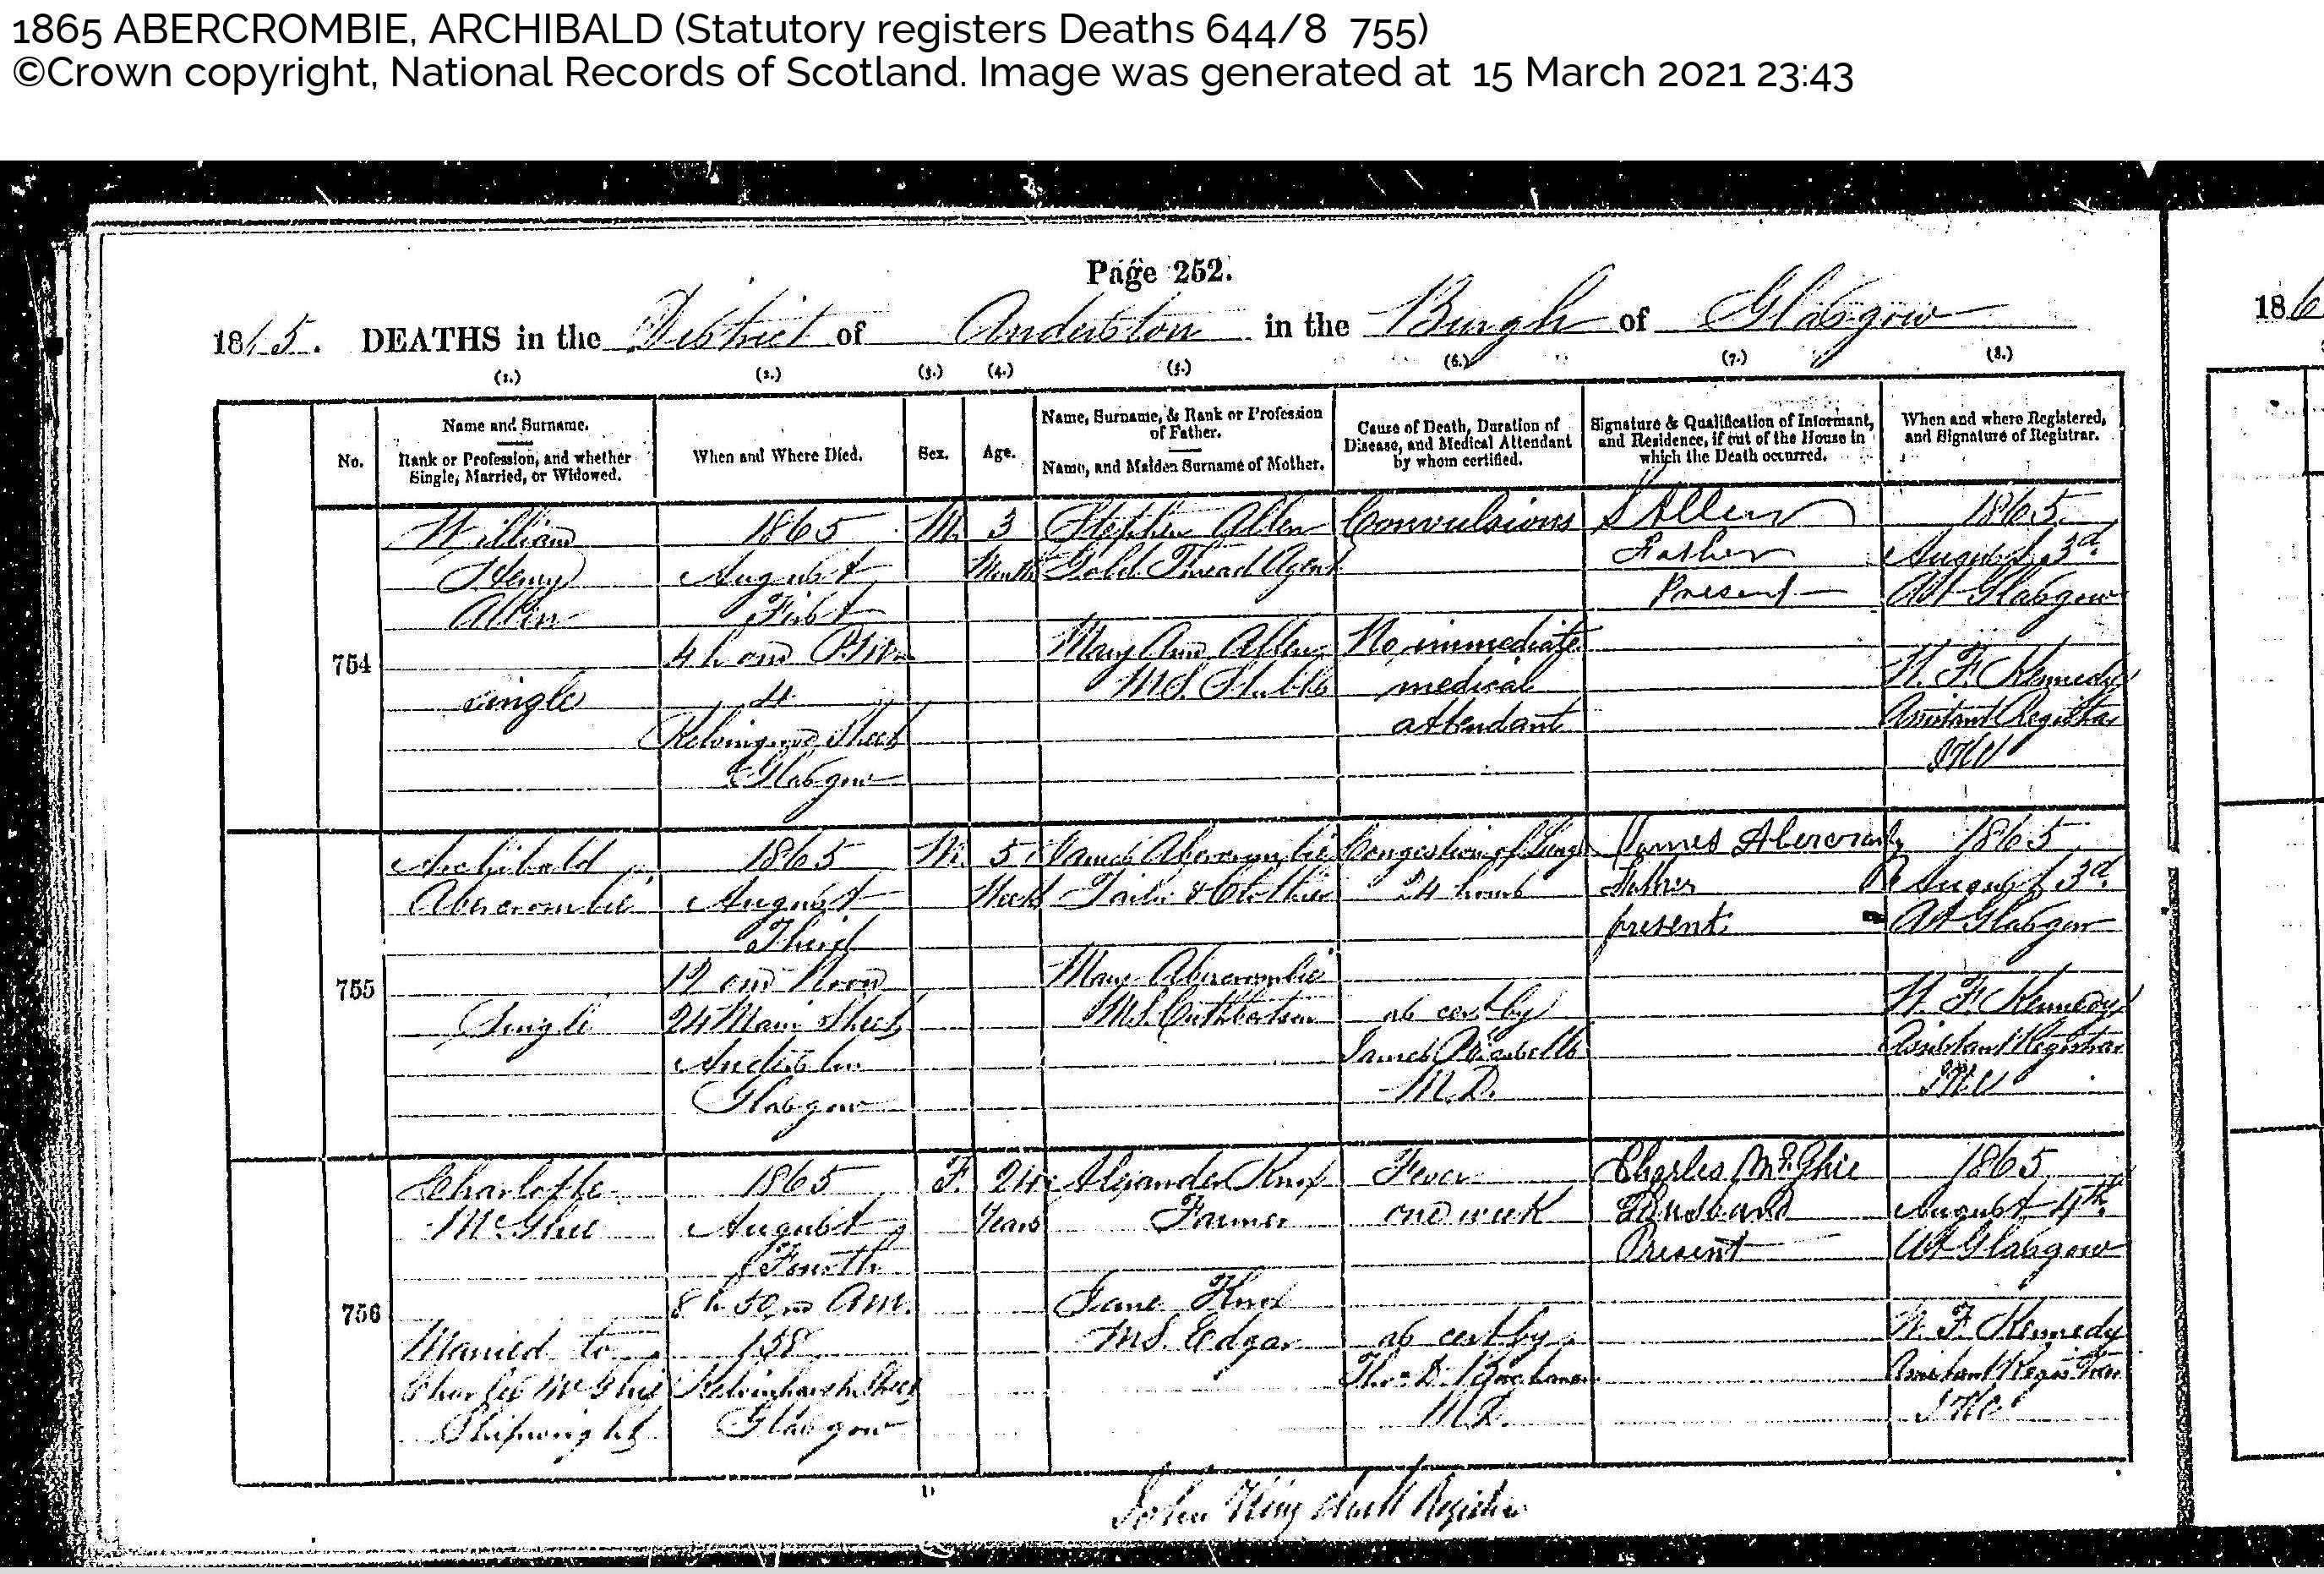 1865 ABERCROMBIE, ARCHIBALD (Statutory registers Deaths 644/8 755)
©Crown copyright, National Records of Scotland. Image was generated at 15 March 2021 23:43
Page 252.
1865. DEATHS in the District of Anderston in the Burgh of Glasgow
186
(1.) (2.) (3.) (4.) (5.) (6.) (7.) (8.)
No.
Name and Surname.
Rank or Profession, and whether
Single, Married, or Widowed.
When and Where Died.
Sex.
Age.
Name, Surname, & Rank or Profession
of Father.
Name, and Maiden Surname of Mother.
Cause of Death, Duration of
Disease, and Medical Attendant
by whom certified.
Signature & Qualification of Informant,
and Residence, if out of the House in
which the Death occurred.
When and where Registered,
and Signature of Registrar.
754
William
Henry
Allen
Single
1865
August
First
4 h 0 m P.M.
4
Kelvingrove Street
Glasgow
M.
3
Months
Stephen Allen
Gold Thread Agent
Mary Ann Allen
M.S.
Convulsions
No immediate
medical
attendant
S Allen
Father
Present
1865
August 3d.
At Glasgow
W. F. Kennedy
Assistant Registrar
755
Archibald
Abercrombie
Single
1865
August
Third
12 and Noon
24 Main Street
Anderston
Glasgow
M.
5
Weeks
James Abercrombie
Tailor & Clothier
Mary Abercrombie
M.S. Cuthbertson
Congestion of Lungs
24 hours
as cert by
James
M.D.
James Abercromby
Father
present
1865
August 3d.
At Glasgow
W. F. Kennedy
Assistant Registrar
756
Charlotte
McGhie
Married to
Charles McGhie
Shipwright
1865
August
Fourth
8 h 50 m A.M.
158
Kelvinhaugh Street
Glasgow
F.
24
Years
Alexander Knox
Farmer
Jane Knox
M.S. Edgar
Fever
one week
as cert by
Thos D. Buchanan
M.D.
Charles McGhie
Husband
Present
1865
August 4th
At Glasgow
W. F. Kennedy
Assistant Registrar
John King Registrar